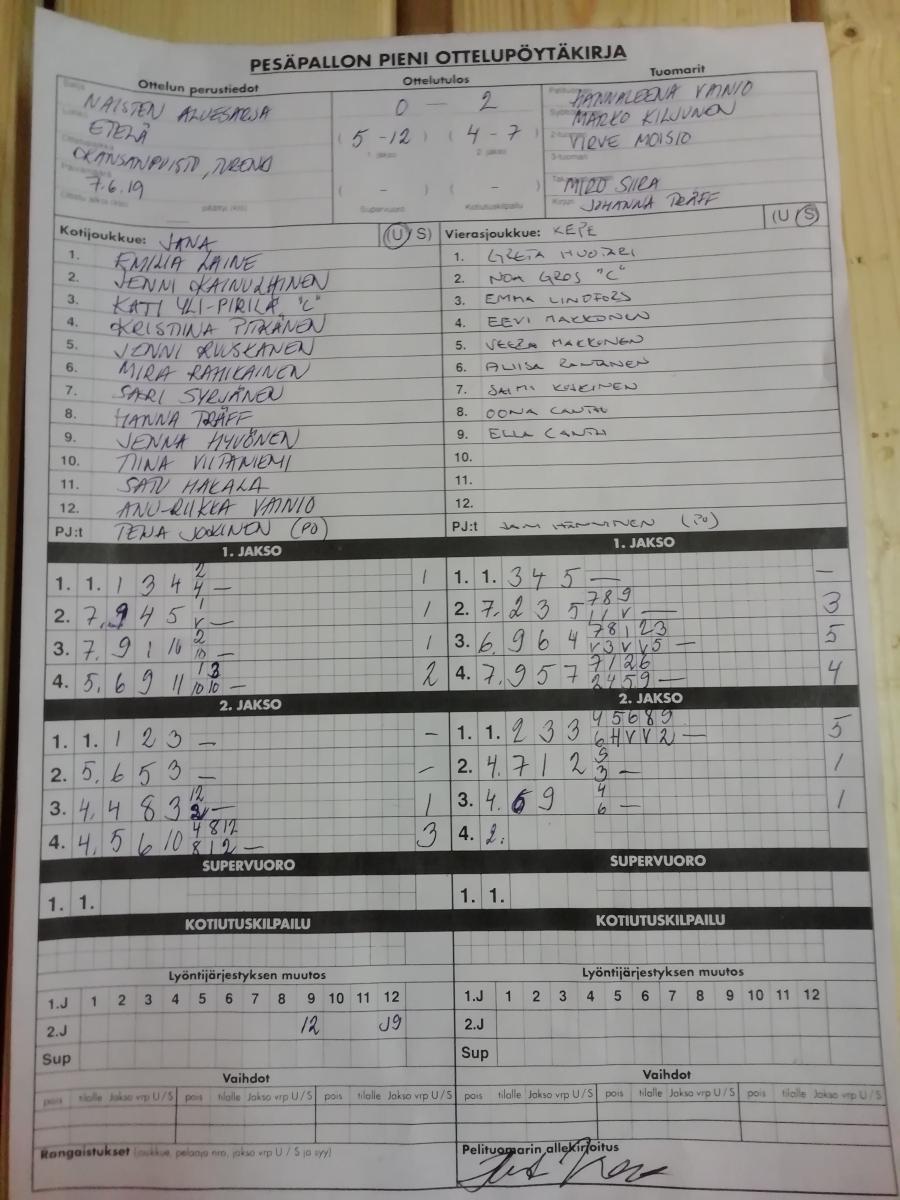 PESÄPALLON PIENI OTTELUPÖYTÄKIRJA
Ottelun perustiedot Ottelutulos Tuomarit
NAISTEN ALUESARJA 0 - 2 HANNALEENA VAINIO
ETELÄ (5-12) (4-7) MARKO KILJUNEN
1. jakso 2. jakso VIRVE MOISIO
7.6.19 ( - ) ( - ) MIRO SIIRA
Supervuoro Kotiutuskilpailu JOHANNA TRÄFF
Kotijoukkue: JANA (U/S) Vierasjoukkue: KEPE (U/S)
1. EMILIA LAINE 1. GRETA HUOTARI
2. JENNI KAINULAINEN 2. NOA GROS "C"
3. KATI YLI-PIRILÄ "C" 3. EMMA LINDFORS
4. KRISTIINA PITKÄNEN 4. EEVI MAKKONEN
5. JENNI RUUSKANEN 5. VEERA MAKKONEN
6. MIRA RAHIKAINEN 6. RANTANEN
7. SARI SYRJÄNEN 7. SAIMI KOSKINEN
8. HANNA TRÄFF 8. OONA CANTH
9. JENNA HYVÖNEN 9. ELLA CANTH
10. TIINA VILTANIEMI 10.
11. SATU HAKALA 11.
12. ANU-RIIKKA VAINIO 12.
PJ:t TEIJA JOKINEN (PO) PJ:t (PO)
1. JAKSO 1. JAKSO
1. 1. 1 3 4 2 4 — 1 1. 1. 3 4 5 — —
2. 7. 9 4 5 1 V — 1 2. 7. 2 3 5 7 8 9 — 3
3. 7. 9 1 10 2 10 — 1 3. 6. 9 6 4 7 8 1 2 3 V 3 V V 5 — 5
4. 5. 6 9 11 1 3 10 10 — 2 4. 7. 9 5 7 7 1 2 6 2 4 5 9 — 4
2. JAKSO 2. JAKSO
1. 1. 1 2 3 — — 1. 1. 2 3 3 4 5 6 8 9 6 4 V V 2 — 5
2. 5. 6 5 3 — — 2. 4. 7 1 2 5 3 — 1
3. 4. 4 8 3 12 — 1 3. 4. 6 9 4 6 — 1
4. 4. 5 6 10 4 8 12 8 1 2 — 3 4. 2.
SUPERVUORO SUPERVUORO
1. 1. 1. 1.
KOTIUTUSKILPAILU KOTIUTUSKILPAILU
Lyöntijärjestyksen muutos Lyöntijärjestyksen muutos
1.J 1 2 3 4 5 6 7 8 9 10 11 12 1.J 1 2 3 4 5 6 7 8 9 10 11 12
2.J 12 J9 2.J
Sup Sup
Vaihdot Vaihdot
pois tilalle Jakso vrp U/S pois tilalle Jakso vrp U/S pois tilalle Jakso vrp U/S pois tilalle Jakso vrp U/S pois tilalle Jakso vrp U/S pois tilalle Jakso vrp U/S
Rangaistukset (joukkue, pelaaja nro, jakso vrp U / S ja syy) Pelituomarin allekirjoitus